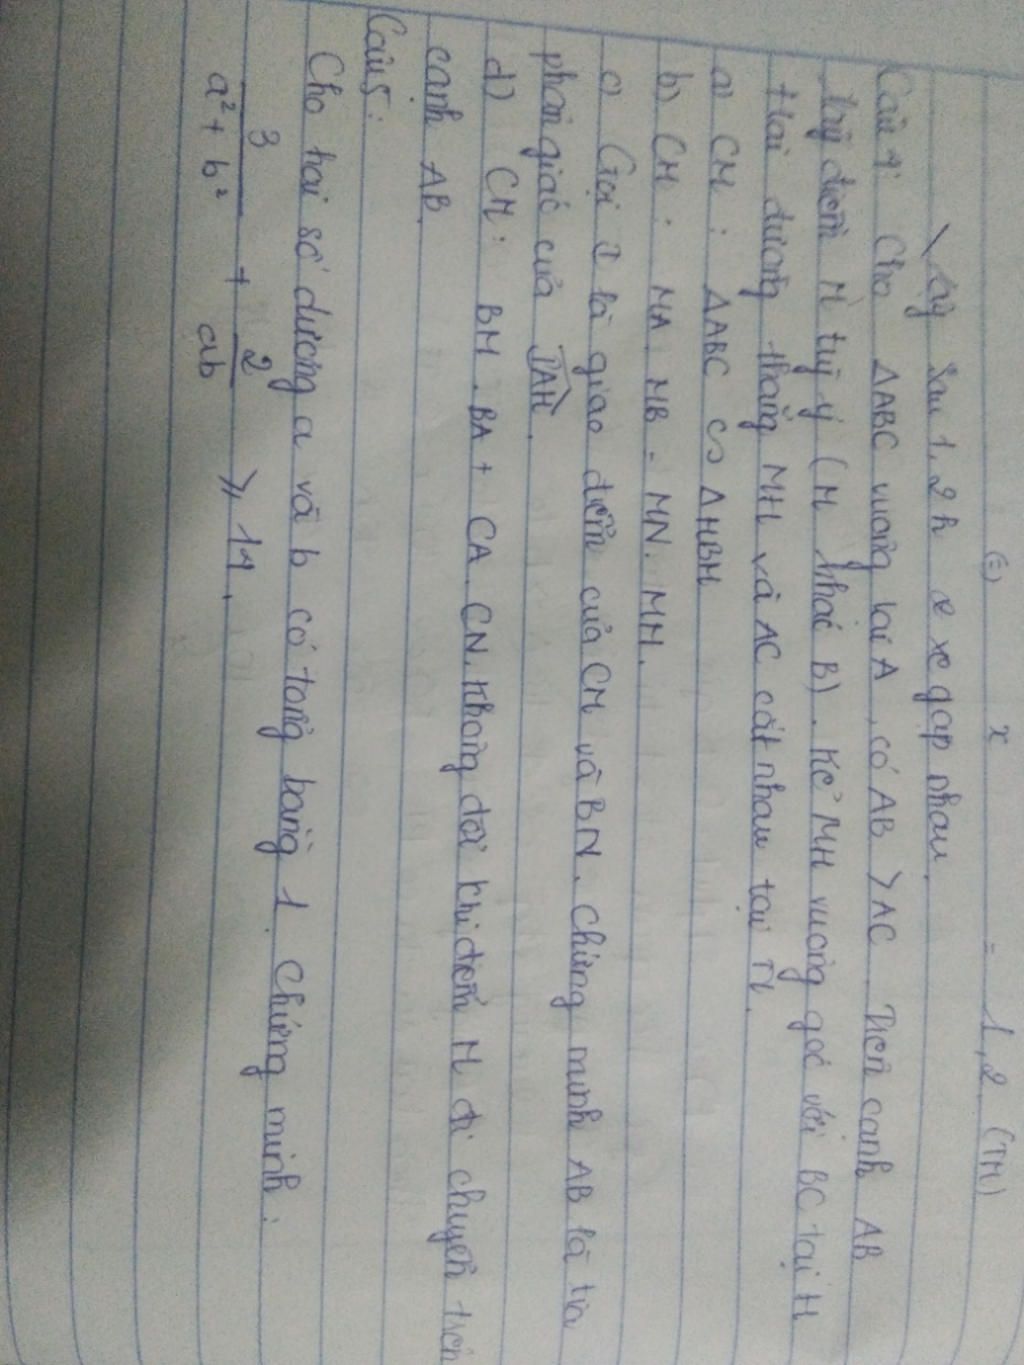 (=) x = 1,2 (TM)
Vậy sau 1,2h 2 xe gặp nhau.
Câu 4: Cho ΔABC vuông tại A, có AB > AC. Trên cạnh AB
lấy điểm M tuỳ ý (M khác B). Kẻ MH vuông góc với BC tại H
Hai đường thẳng MH và AC cắt nhau tại N.
a) CM: ΔABC ∽ ΔHBM
b) CM: MA. MB = MN. MH.
c) Gọi I là giao điểm của CM và BN. Chứng minh AB là tia
phân giác của IAH.
d) CM: BM. BA + CA. CN. Không đổi khi điểm M di chuyển trên
cạnh AB.
Câu 5:
Cho hai số dương a và b có tổng bằng 1. Chứng minh:
3/(a² + b²) + 2/ab ⩾ 14.